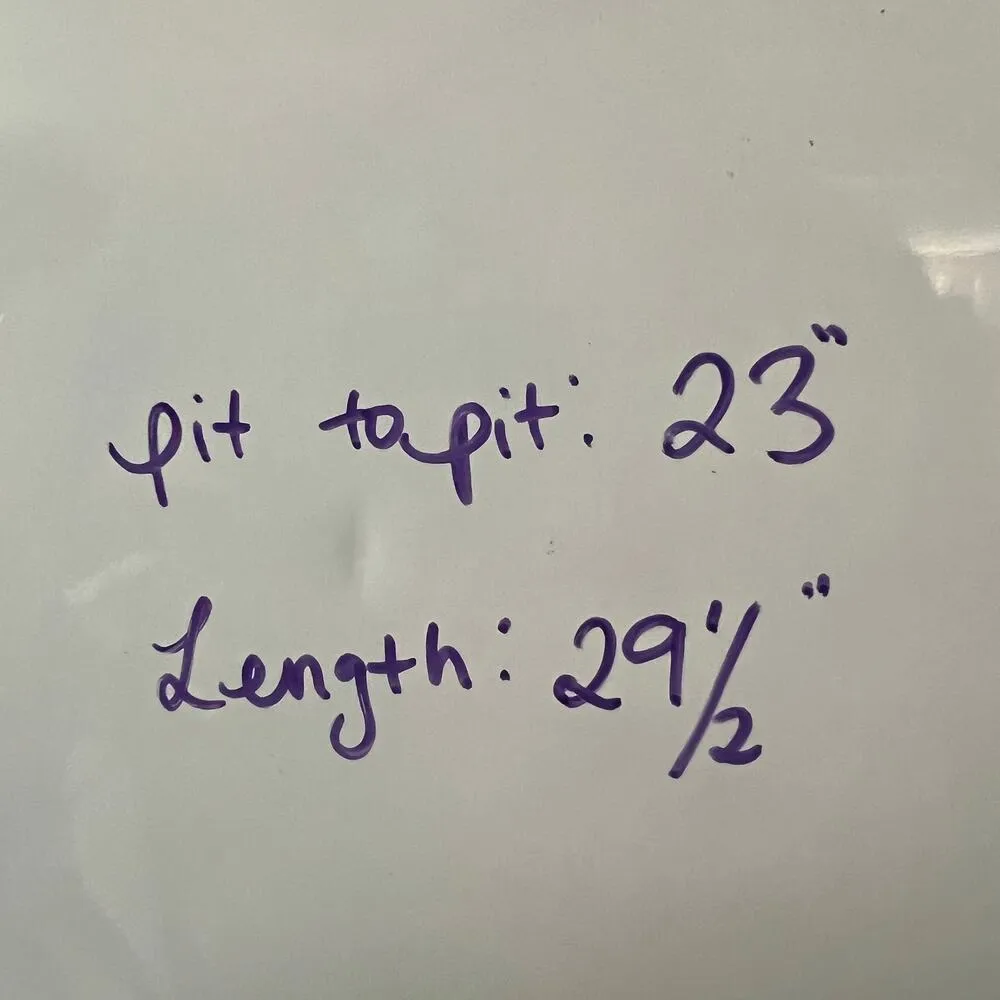 pit to pit: 23"
Length: 29 1/2"